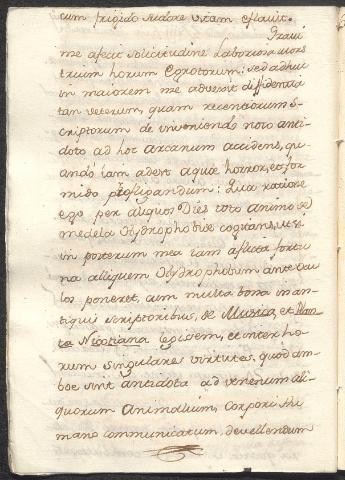 cum frigido sudore vitam efflavit.
Gravi
me afecit solicitudine laboriosa mors
trium horum Egrotorum: sed ad huc
in maiorem me adversit diffidentia
tan veterum, quam recentiorum S-
criptorum de inveniendo noto anti-
doto ad hoc arcanum accidens, qu-
ando iam adest aquæ horror, et for
mido profligandum: Qua ratione
ego per aliquos Dies toto animo de
medela Hydrophobiæ cogitans, ut si
in posterum mea iam aflicta fortu
na alliquem Hydrophobum ante ocu
los poneret, cum multa bona in an-
tiquis scriptoribus, de Musica, et Plan-
ta Nicotiana legissem, et inter ho
rum singulares virtutes, quod am-
boe sint antidota ad venenum ali-
quorum Animalium, corpori hu
mano communicatum, devellendum